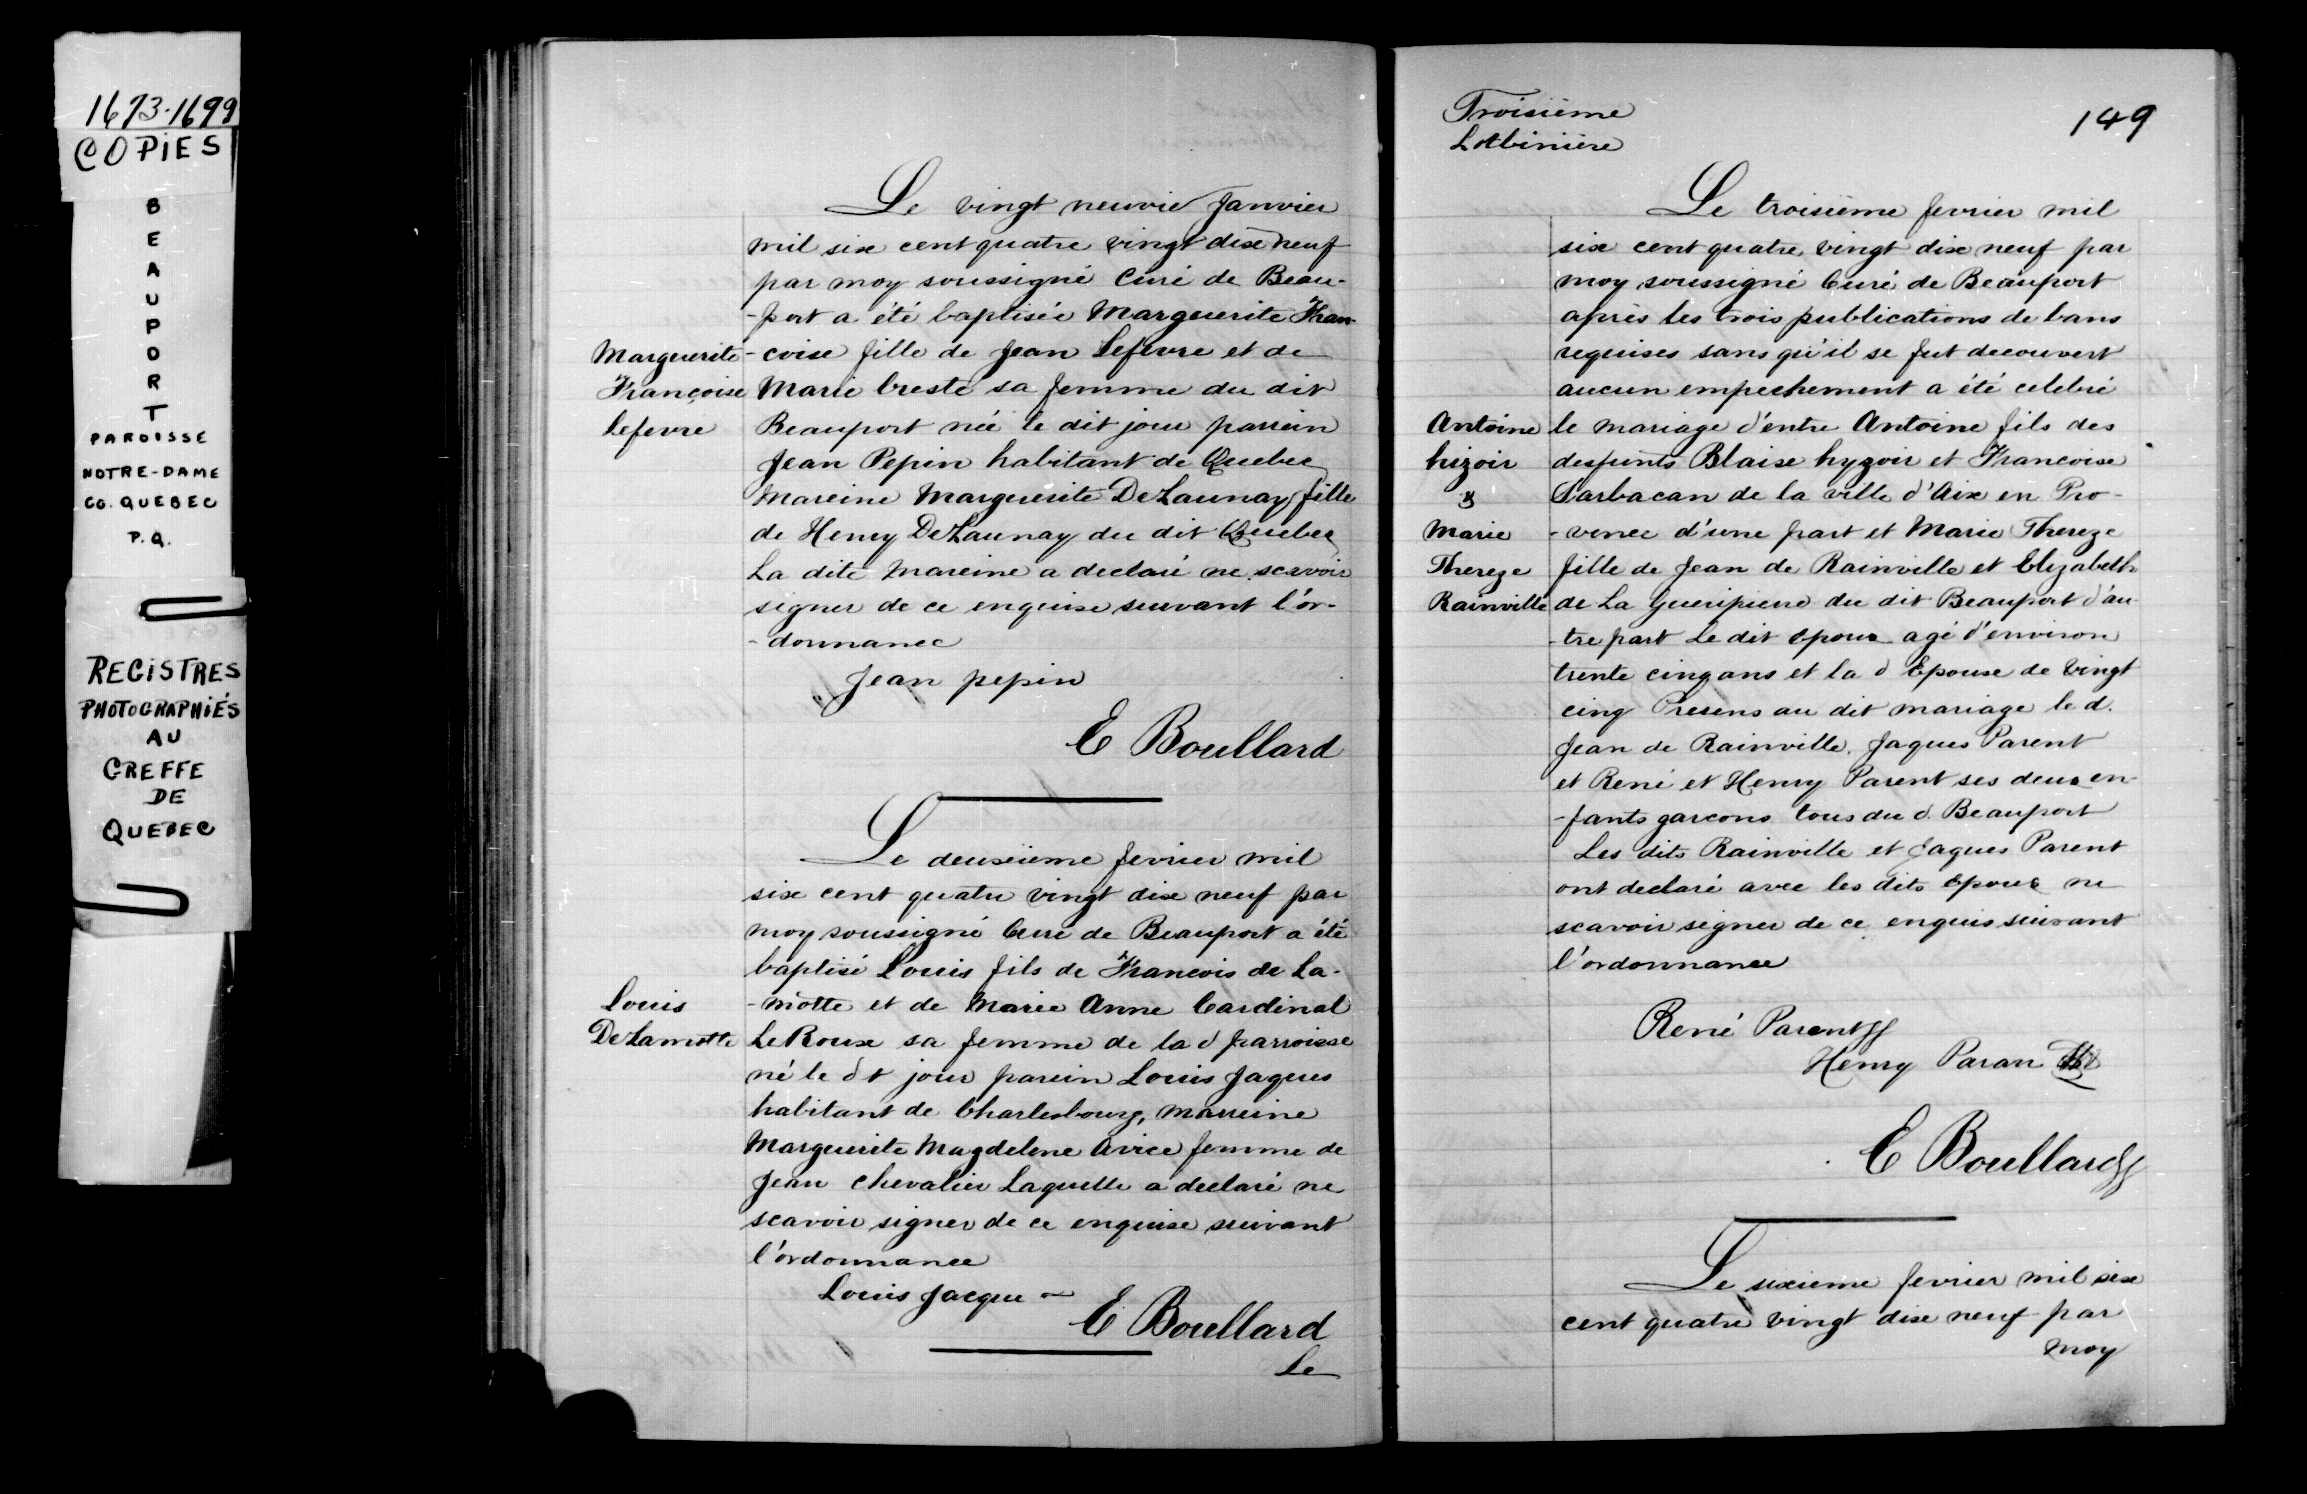 1673-1699
COPIES
BEAUPORT
PAROISSE
NOTRE-DAME
CO. QUEBEC
P.Q.
REGISTRES
PHOTOGRAPHIÉS
AU
GREFFE
DE
QUEBEC
Le vingt neuvie Janvier
mil six cent quatre vingt dix neuf
par moy soussigné Curé de Beau-
-port a été baptisée Marguerite Fran-
Marguerite
-coise fille de Jean Lefevre et de
Françoise
Marie Creste sa femme du dit
Lefevre
Beauport née le dit jour parrein
Jean Pepin habitant de Quebec
Mareine Marguerite DeLaunay fille
de Henry DeLaunay du dit Quebec
La dite Mareine a declaré ne scavoir
signer de ce enquise suivant l'or-
-donnance
Jean pepin
E Boullard
Le deuxieme fevrier mil
six cent quatre vingt dix neuf par
moy soussigné Curé de Beauport a été
baptisé Louis fils de Francois de La-
Louis
-motte et de Marie Anne Cardinal
DeLamotte
LeRoux sa femme de la d parroisse
né le dt jour parein Louis Jaques
habitant de Charlesbourg, marreine
Marguerite Magdelene Avice femme de
Jean Chevalier Laquelle a declaré ne
scavoir signer de ce enquise suivant
l'ordonnance
Louis Jacque
E Boullard
Le
Troisième
Lotbinière
149
Le troisième fevrier mil
six cent quatre vingt dix neuf par
moy soussigné Curé de Beauport
après les trois publications de bans
requises sans qu'il se fut decouvert
aucun empechement a été celebré
Antoine
le mariage d'entre Antoine fils des
huzoir
desfunts Blaise hyzoir et Francoise
&
Sarbacan de la ville d'Aix en Pro-
Marie
-vence d'une part et Marie Thereze
Thereze
fille de Jean de Rainville et Elizabeth
Rainville
de La Gueripiere du dit Beauport d'au
-tre part Le dit epoux agé d'environ
trente cinq ans et la d Epouse de Vingt
cinq Presens au dit mariage le d.
Jean de Rainville, Jaques Parent
et René et Henry Parent ses deux en-
-fants garcons tous du d. Beauport
Les dits Rainville et Jaques Parent
ont declaré avec les dits epoux ne
scavoir signer de ce enquis suivant
l'ordonnance
René Parent
Henry Paran
E Boullard
Le sixieme fevrier mil six
cent quatre vingt dix neuf par
moy